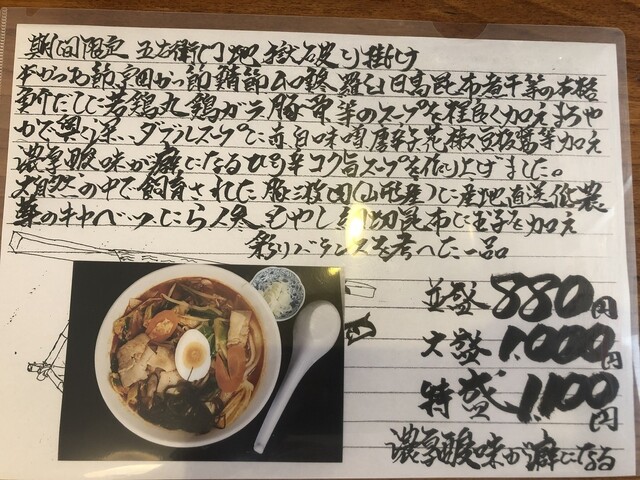 期間限定 五右衛門地獄石破り掛け
本かつお節宗田かつ節鯖節ムロ鯵、羅臼日高昆布煮干等の本格
だしに若鶏丸鶏ガラ豚骨等のスープを程良く加えまろや
かで奥深、ダブルスープに赤白味噌唐辛子花椒豆板醤等加え
濃厚酸味が癖になるひり辛コク旨スープを作り上げました。
大自然の中で飼育された豚三枚肉(山形産)に産地直送低農
薬のキャベツにら人参もやし刻切昆布に玉子を加え
彩りバランスを考へた一品
並盛 880円
大盛 1.000円
特盛 1.100円
濃厚酸味が癖になる